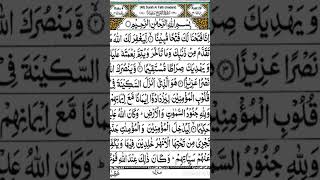 (48) Surah Al Fath (madani)
بِسْمِ اللهِ الرَّحْمٰنِ الرَّحِيْمِ
اِنَّا فَتَحْنَا لَكَ فَتْحًا مُّبِيْنًا لِّيَغْفِرَ لَكَ اللهُ
تَقَدَّمَ مِنْ ذَنْۢبِكَ وَمَا تَاَخَّرَ وَيُتِمَّ نِعْمَتَهٗ عَلَيْكَ
وَيَهْدِيَكَ صِرَاطًا مُّسْتَقِيْمًا وَّيَنْصُرَكَ
نَصْرًا عَزِيْزًا هُوَ الَّذِيْٓ اَنْزَلَ السَّكِيْنَةَ فِيْ
قُلُوْبِ الْمُؤْمِنِيْنَ لِيَزْدَادُوْٓا اِيْمَانًا مَّعَ اِيْمَانِهِمْ
وَلِلّٰهِ جُنُوْدُ السَّمٰوٰتِ وَالْاَرْضِ وَكَانَ اللهُ
حَكِيْمًا لِّيُدْخِلَ الْمُؤْمِنِيْنَ وَالْمُؤْمِنٰتِ
تَجْرِيْ مِنْ تَحْتِهَا الْاَنْهٰرُ خٰلِدِيْنَ فِيْهَا
عَنْهُمْ سَيِّاٰتِهِمْ وَكَانَ ذٰلِكَ عِنْدَ اللهِ